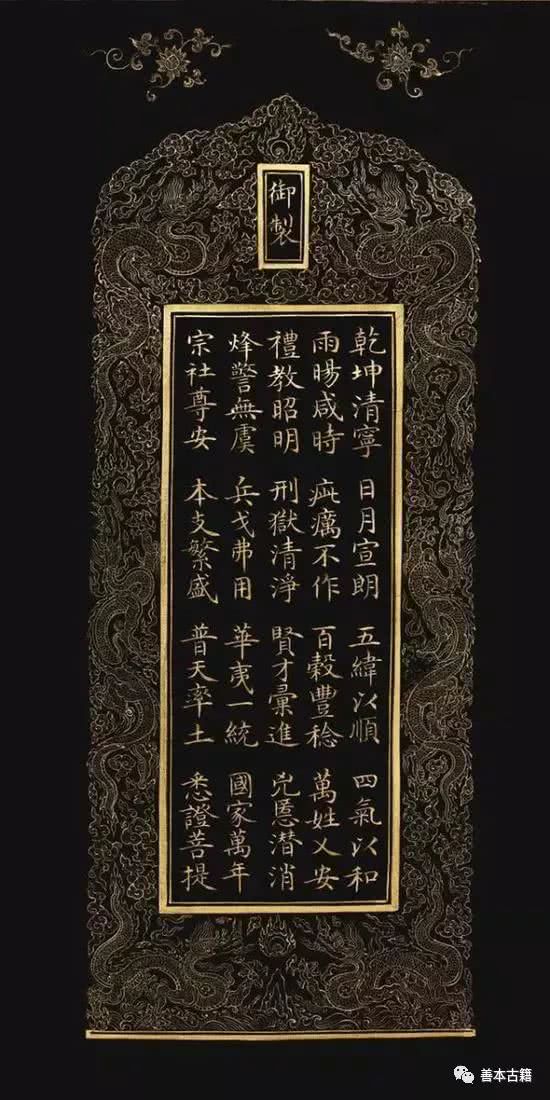 御製
乾坤清寧 日月宣朗 五緯以順 四氣以和
雨暘咸時 疵癘不作 百穀豐稔 萬姓乂安
禮教昭明 刑獄清淨 賢才彙進 兇慝潜消
烽警無虞 兵戈弗用 華夷一統 國家萬年
宗社尊安 本支繁盛 普天率土 悉證菩提
善本古籍